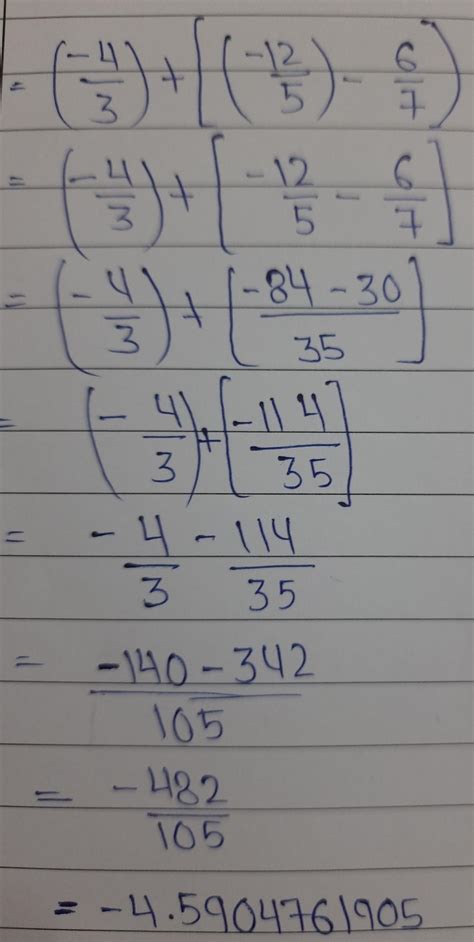 = (-4/3) + [(-12/5) - 6/7)
= (-4/3) + [-12/5 - 6/7]
= (-4/3) + [-84 - 30/35]
= (-4/3) + [-114/35]
= -4/3 - 114/35
= -140 - 342/105
= -482/105
= -4.5904761905